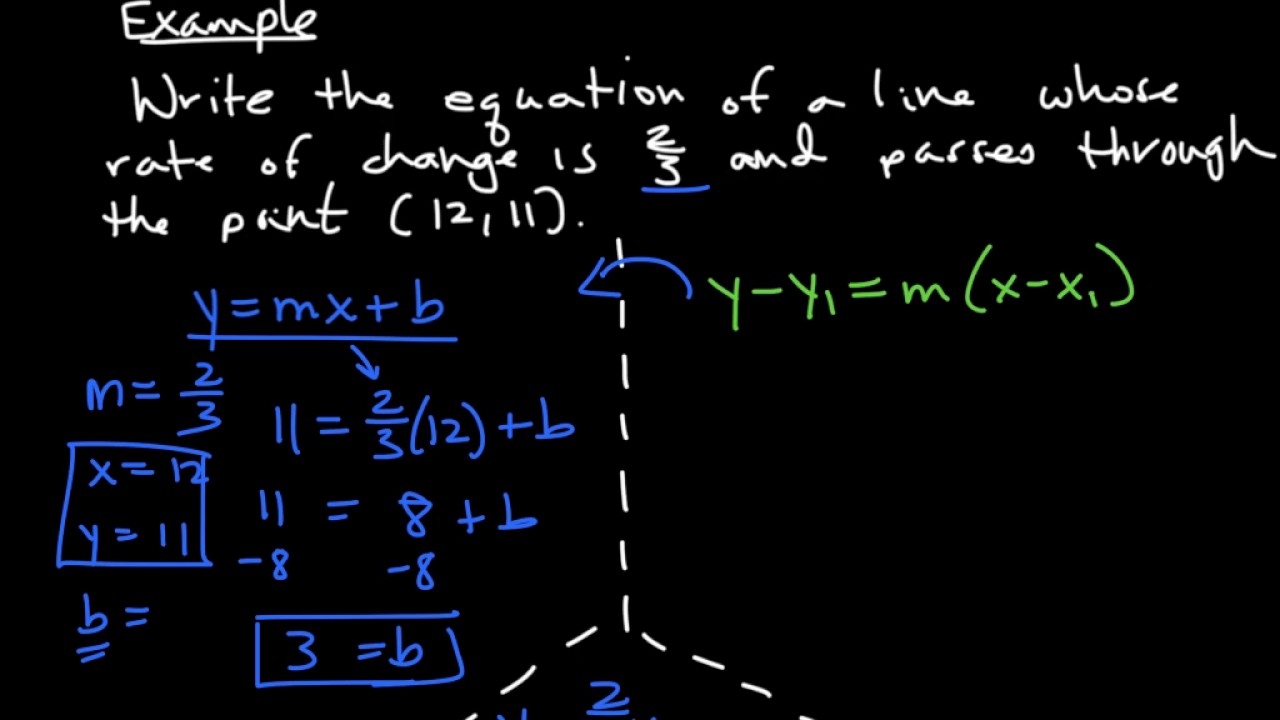 Example
Write the equation of a line whose
rate of change is 2/3 and passes through
the point (12, 11).
y = mx + b
m = 2/3
x = 12
y = 11
b =
11 = 2/3(12) + b
11 = 8 + b
-8 -8
3 = b
y - y₁ = m(x - x₁)
2